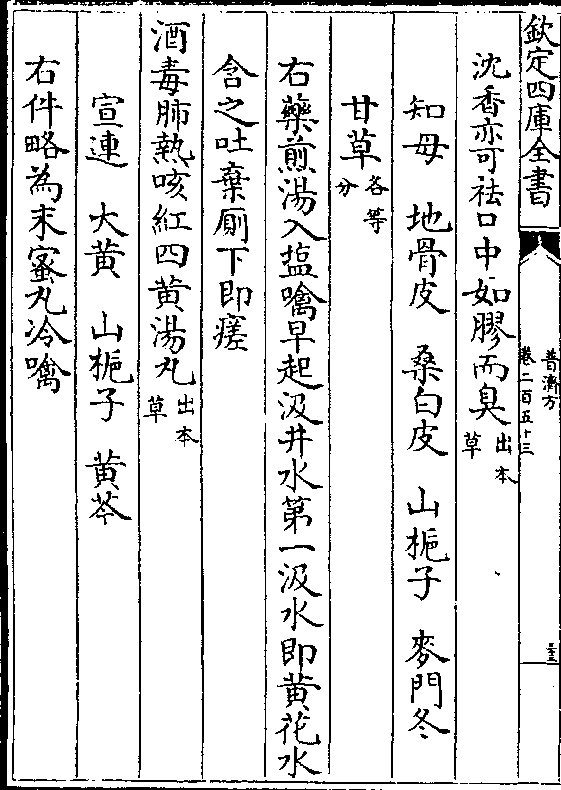 欽定四庫全書
普濟方
卷二百五十三
三十三
沈香亦可祛口中如膠而臭出本草
知母　地骨皮　桑白皮　山梔子　麥門冬
甘草各等分
右藥煎湯入盐噙早起汲井水第一汲水即黄花水
含之吐棄厠下即瘥
酒毒肺熱咳紅四黄湯丸出本草
宣連　大黄　山梔子　黄芩
右件略為末蜜丸冷噙